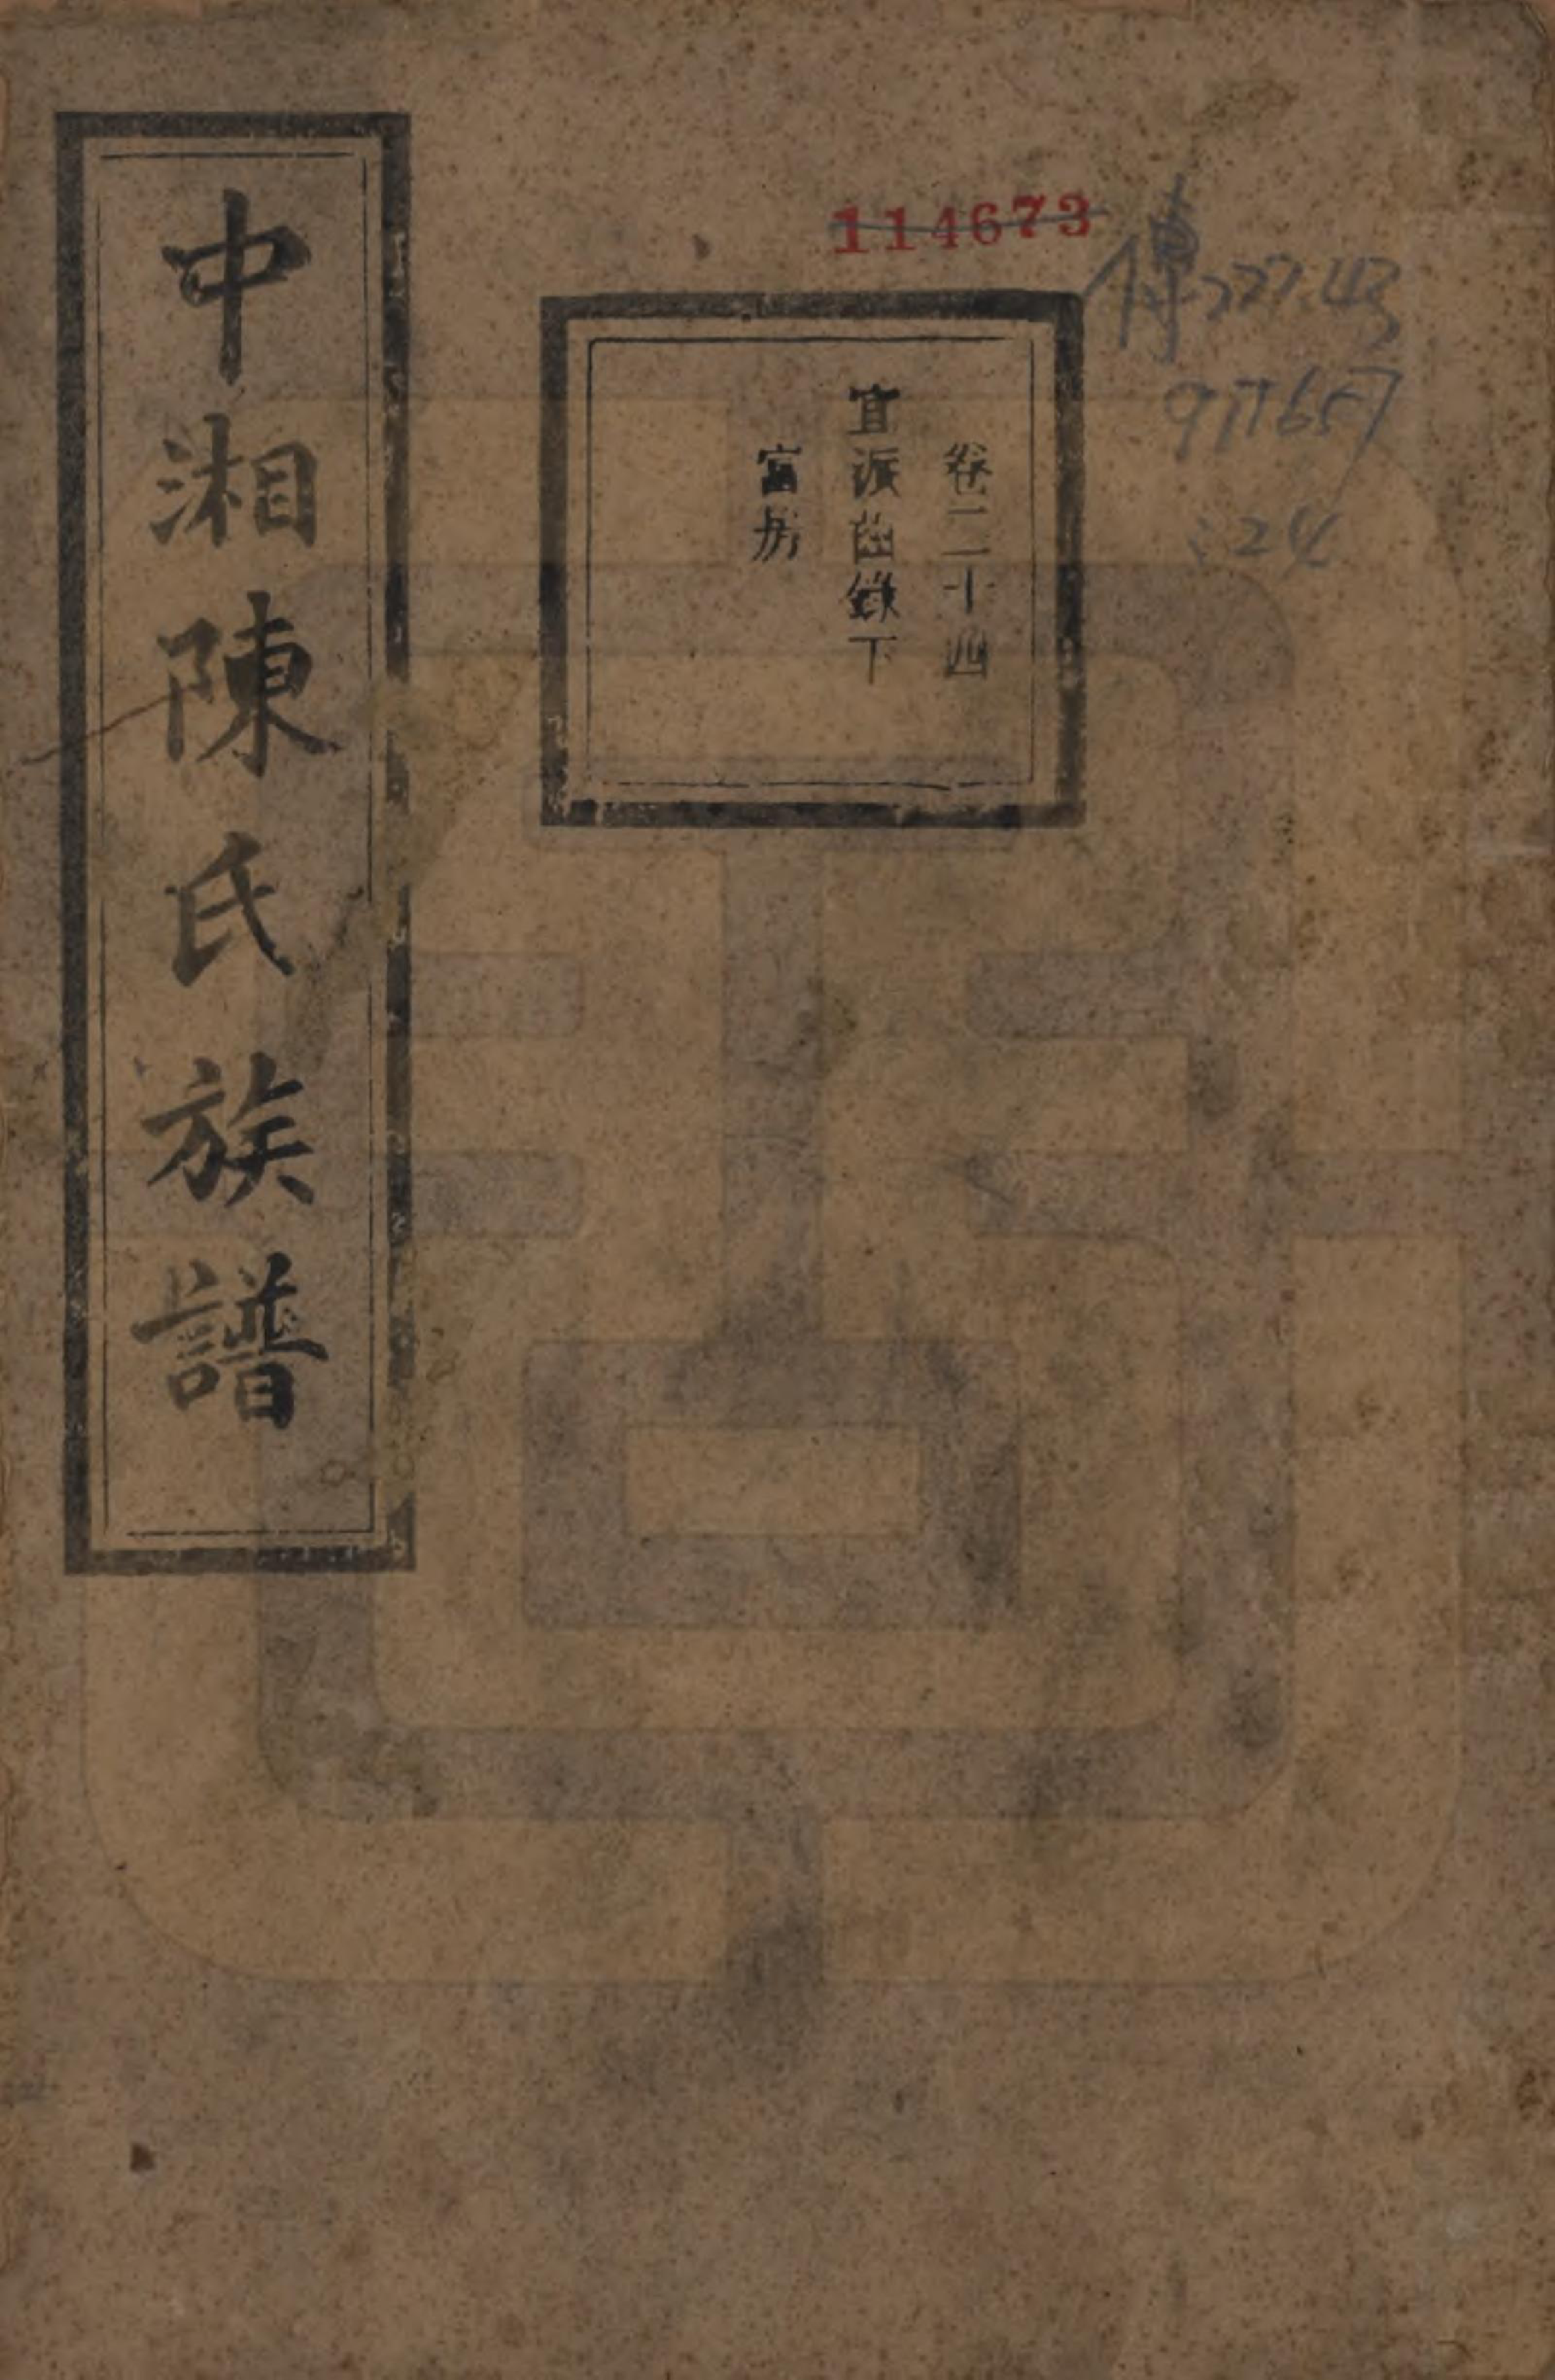 114673
傳727.43
:24
卷二十四
宜派齒錄下
富房
中湘陳氏族譜